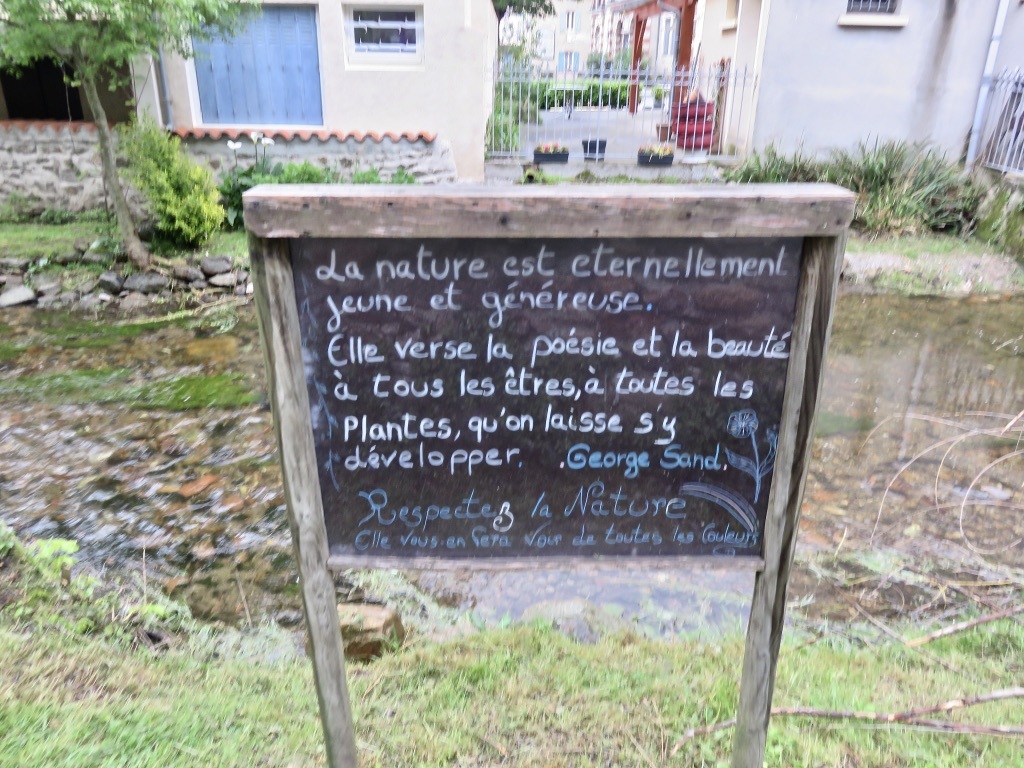 La nature est eternellement
jeune et généreuse.
Elle verse la poésie et la beauté
à tous les êtres, à toutes les
Plantes, qu'on laisse s'y
développer. .George Sand.
Respectez la Nature
Elle vous en fera Voir de toutes les Couleurs